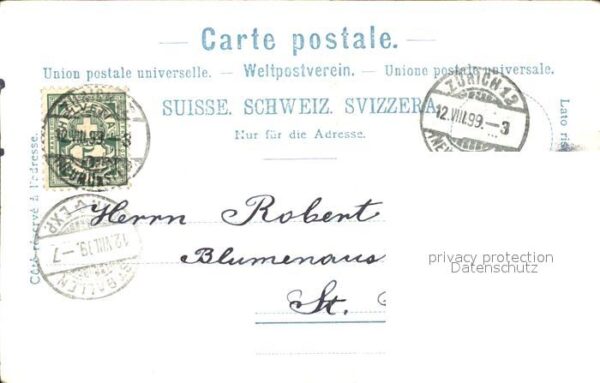 Carte postale.
Union postale universelle. — Weltpostverein. — Unione postale universale.
SUISSE. SCHWEIZ. SVIZZERA
Nur für die Adresse.
Côté réservé à l'adresse.
Lato ris
ZÜRICH 12
12.VIII.99.–3
12.VIII.99.–3
HELVETIA
12.VIII.99.–7
ST. GALLEN
Herrn Robert
Blumenaus
St.
privacy protection
Datenschutz